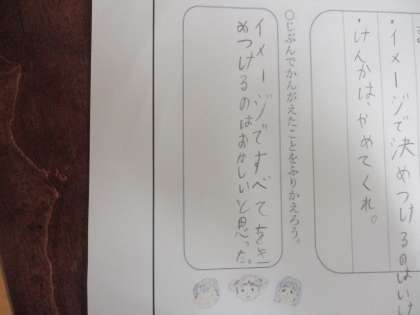 ・イメージで決めつけるのはいけ
・けんかは、やめてくれ。
○じぶんでかんがえたことをふりかえろう。
イメージですべてをき
めつけるのはおかしいと思った。